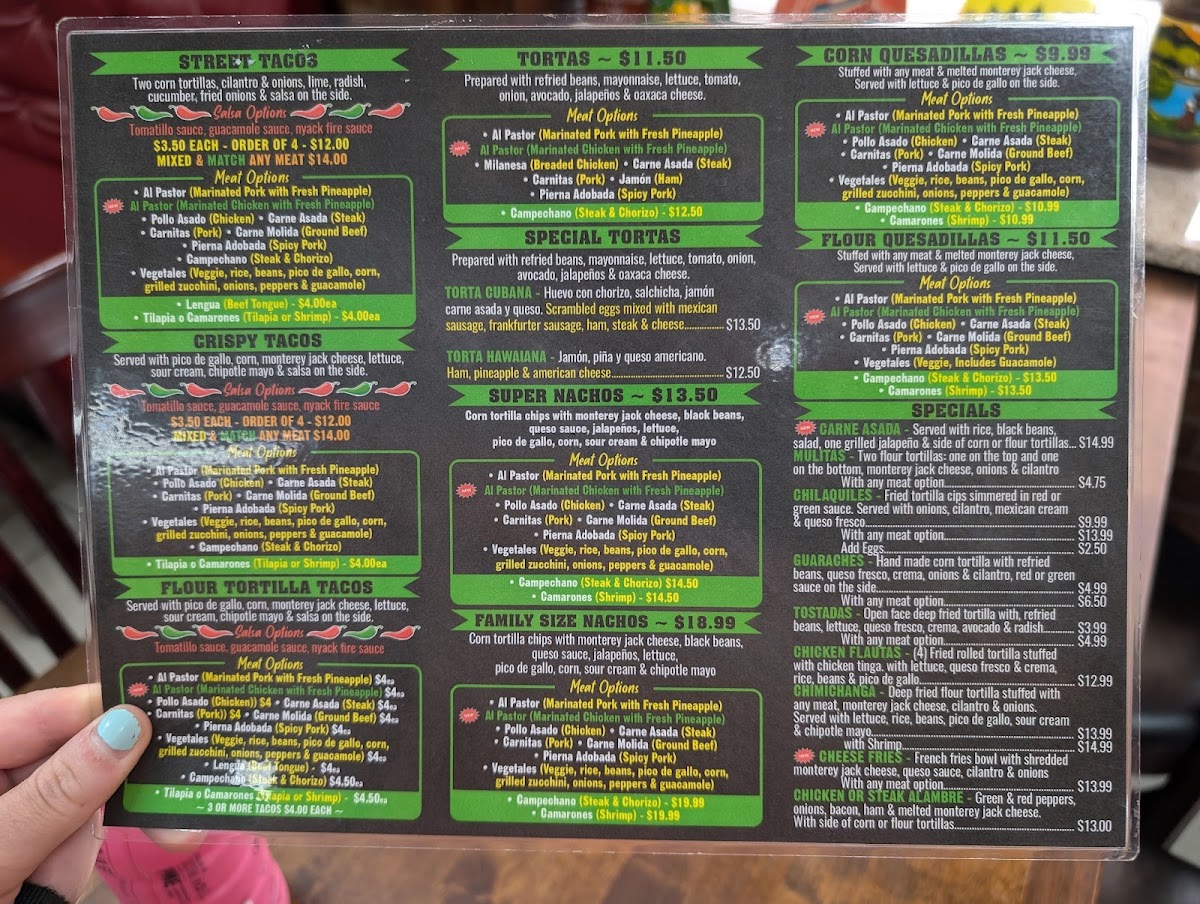 STREET TACOS
Two corn tortillas, cilantro & onions, lime, radish,
cucumber, fried onions & salsa on the side.
Salsa Options
Tomatillo sauce, guacamole sauce, nyack fire sauce
$3.50 EACH - ORDER OF 4 - $12.00
MIXED & MATCH ANY MEAT $14.00
Meat Options
• Al Pastor (Marinated Pork with Fresh Pineapple)
NEW Al Pastor (Marinated Chicken with Fresh Pineapple)
• Pollo Asado (Chicken) • Carne Asada (Steak)
• Carnitas (Pork) • Carne Molida (Ground Beef)
• Pierna Adobada (Spicy Pork)
• Campechano (Steak & Chorizo)
• Vegetales (Veggie, rice, beans, pico de gallo, corn,
grilled zucchini, onions, peppers & guacamole)
• Lengua (Beef Tongue) - $4.00ea
• Tilapia o Camarones (Tilapia or Shrimp) - $4.00ea
CRISPY TACOS
Served with pico de gallo, corn, monterey jack cheese, lettuce,
sour cream, chipotle mayo & salsa on the side.
Salsa Options
Tomatillo sauce, guacamole sauce, nyack fire sauce
$3.50 EACH - ORDER OF 4 - $12.00
MIXED & MATCH ANY MEAT $14.00
Meat Options
• Al Pastor (Marinated Pork with Fresh Pineapple)
• Pollo Asado (Chicken) • Carne Asada (Steak)
• Carnitas (Pork) • Carne Molida (Ground Beef)
• Pierna Adobada (Spicy Pork)
• Vegetales (Veggie, rice, beans, pico de gallo, corn,
grilled zucchini, onions, peppers & guacamole)
• Campechano (Steak & Chorizo)
• Tilapia o Camarones (Tilapia or Shrimp) - $4.00ea
FLOUR TORTILLA TACOS
Served with pico de gallo, corn, monterey jack cheese, lettuce,
sour cream, chipotle mayo & salsa on the side.
Salsa Options
Tomatillo sauce, guacamole sauce, nyack fire sauce
Meat Options
• Al Pastor (Marinated Pork with Fresh Pineapple) $4ea
NEW Al Pastor (Marinated Chicken with Fresh Pineapple) $4ea
• Pollo Asado (Chicken)) $4 • Carne Asada (Steak) $4ea
• Carnitas (Pork)) $4 • Carne Molida (Ground Beef) $4ea
• Pierna Adobada (Spicy Pork) $4ea
• Vegetales (Veggie, rice, beans, pico de gallo, corn,
grilled zucchini, onions, peppers & guacamole) $4ea
• Lengua (Beef Tongue) - $4ea
• Campechano (Steak & Chorizo) $4.50ea
• Tilapia o Camarones (Tilapia or Shrimp) - $4.50ea
~ 3 OR MORE TACOS $4.00 EACH ~
TORTAS ~ $11.50
Prepared with refried beans, mayonnaise, lettuce, tomato,
onion, avocado, jalapeños & oaxaca cheese.
Meat Options
• Al Pastor (Marinated Pork with Fresh Pineapple)
NEW Al Pastor (Marinated Chicken with Fresh Pineapple)
• Milanesa (Breaded Chicken) • Carne Asada (Steak)
• Carnitas (Pork) • Jamón (Ham)
• Pierna Adobada (Spicy Pork)
• Campechano (Steak & Chorizo) - $12.50
SPECIAL TORTAS
Prepared with refried beans, mayonnaise, lettuce, tomato, onion,
avocado, jalapeños & oaxaca cheese.
TORTA CUBANA - Huevo con chorizo, salchicha, jamón
carne asada y queso. Scrambled eggs mixed with mexican
sausage, frankfurter sausage, ham, steak & cheese................ $13.50
TORTA HAWAIANA - Jamón, piña y queso americano.
Ham, pineapple & american cheese................ $12.50
SUPER NACHOS ~ $13.50
Corn tortilla chips with monterey jack cheese, black beans,
queso sauce, jalapeños, lettuce,
pico de gallo, corn, sour cream & chipotle mayo
Meat Options
• Al Pastor (Marinated Pork with Fresh Pineapple)
NEW Al Pastor (Marinated Chicken with Fresh Pineapple)
• Pollo Asado (Chicken) • Carne Asada (Steak)
• Carnitas (Pork) • Carne Molida (Ground Beef)
• Pierna Adobada (Spicy Pork)
• Vegetales (Veggie, rice, beans, pico de gallo, corn,
grilled zucchini, onions, peppers & guacamole)
• Campechano (Steak & Chorizo) $14.50
• Camarones (Shrimp) - $14.50
FAMILY SIZE NACHOS ~ $18.99
Corn tortilla chips with monterey jack cheese, black beans,
queso sauce, jalapeños, lettuce,
pico de gallo, corn, sour cream & chipotle mayo
Meat Options
• Al Pastor (Marinated Pork with Fresh Pineapple)
NEW Al Pastor (Marinated Chicken with Fresh Pineapple)
• Pollo Asado (Chicken) • Carne Asada (Steak)
• Carnitas (Pork) • Carne Molida (Ground Beef)
• Pierna Adobada (Spicy Pork)
• Vegetales (Veggie, rice, beans, pico de gallo, corn,
grilled zucchini, onions, peppers & guacamole)
• Campechano (Steak & Chorizo) - $19.99
• Camarones (Shrimp) - $19.99
CORN QUESADILLAS ~ $9.99
Stuffed with any meat & melted monterey jack cheese,
Served with lettuce & pico de gallo on the side.
Meat Options
• Al Pastor (Marinated Pork with Fresh Pineapple)
NEW Al Pastor (Marinated Chicken with Fresh Pineapple)
• Pollo Asado (Chicken) • Carne Asada (Steak)
• Carnitas (Pork) • Carne Molida (Ground Beef)
• Pierna Adobada (Spicy Pork)
• Vegetales (Veggie, rice, beans, pico de gallo, corn,
grilled zucchini, onions, peppers & guacamole)
• Campechano (Steak & Chorizo) - $10.99
• Camarones (Shrimp) - $10.99
FLOUR QUESADILLAS ~ $11.50
Stuffed with any meat & melted monterey jack cheese,
Served with lettuce & pico de gallo on the side.
Meat Options
• Al Pastor (Marinated Pork with Fresh Pineapple)
NEW Al Pastor (Marinated Chicken with Fresh Pineapple)
• Pollo Asado (Chicken) • Carne Asada (Steak)
• Carnitas (Pork) • Carne Molida (Ground Beef)
• Pierna Adobada (Spicy Pork)
• Vegetales (Veggie, Includes Guacamole)
• Campechano (Steak & Chorizo) - $13.50
• Camarones (Shrimp) - $13.50
SPECIALS
NEW CARNE ASADA - Served with rice, black beans,
salad, one grilled jalapeño & side of corn or flour tortillas... $14.99
MULITAS - Two flour tortillas: one on the top and one
on the bottom, monterey jack cheese, onions & cilantro
With any meat option................ $4.75
CHILAQUILES - Fried tortilla cips simmered in red or
green sauce. Served with onions, cilantro, mexican cream
& queso fresco................ $9.99
With any meat option................ $13.99
Add Eggs................ $2.50
GUARACHES - Hand made corn tortilla with refried
beans, queso fresco, crema, onions & cilantro, red or green
sauce on the side................ $4.99
With any meat option................ $6.50
TOSTADAS - Open face deep fried tortilla with, refried
beans, lettuce, queso fresco, crema, avocado & radish........ $3.99
With any meat option................ $4.99
CHICKEN FLAUTAS - (4) Fried rolled tortilla stuffed
with chicken tinga, with lettuce, queso fresco & crema,
rice, beans & pico de gallo................ $12.99
CHIMICHANGA - Deep fried flour tortilla stuffed with
any meat, monterey jack cheese, cilantro & onions.
Served with lettuce, rice, beans, pico de gallo, sour cream
& chipotle mayo................ $13.99
with Shrimp................ $14.99
NEW CHEESE FRIES - French fries bowl with shredded
monterey jack cheese, queso sauce, cilantro & onions
With any meat option................ $13.99
CHICKEN OR STEAK ALAMBRE - Green & red peppers,
onions, bacon, ham & melted monterey jack cheese.
With side of corn or flour tortillas................ $13.00